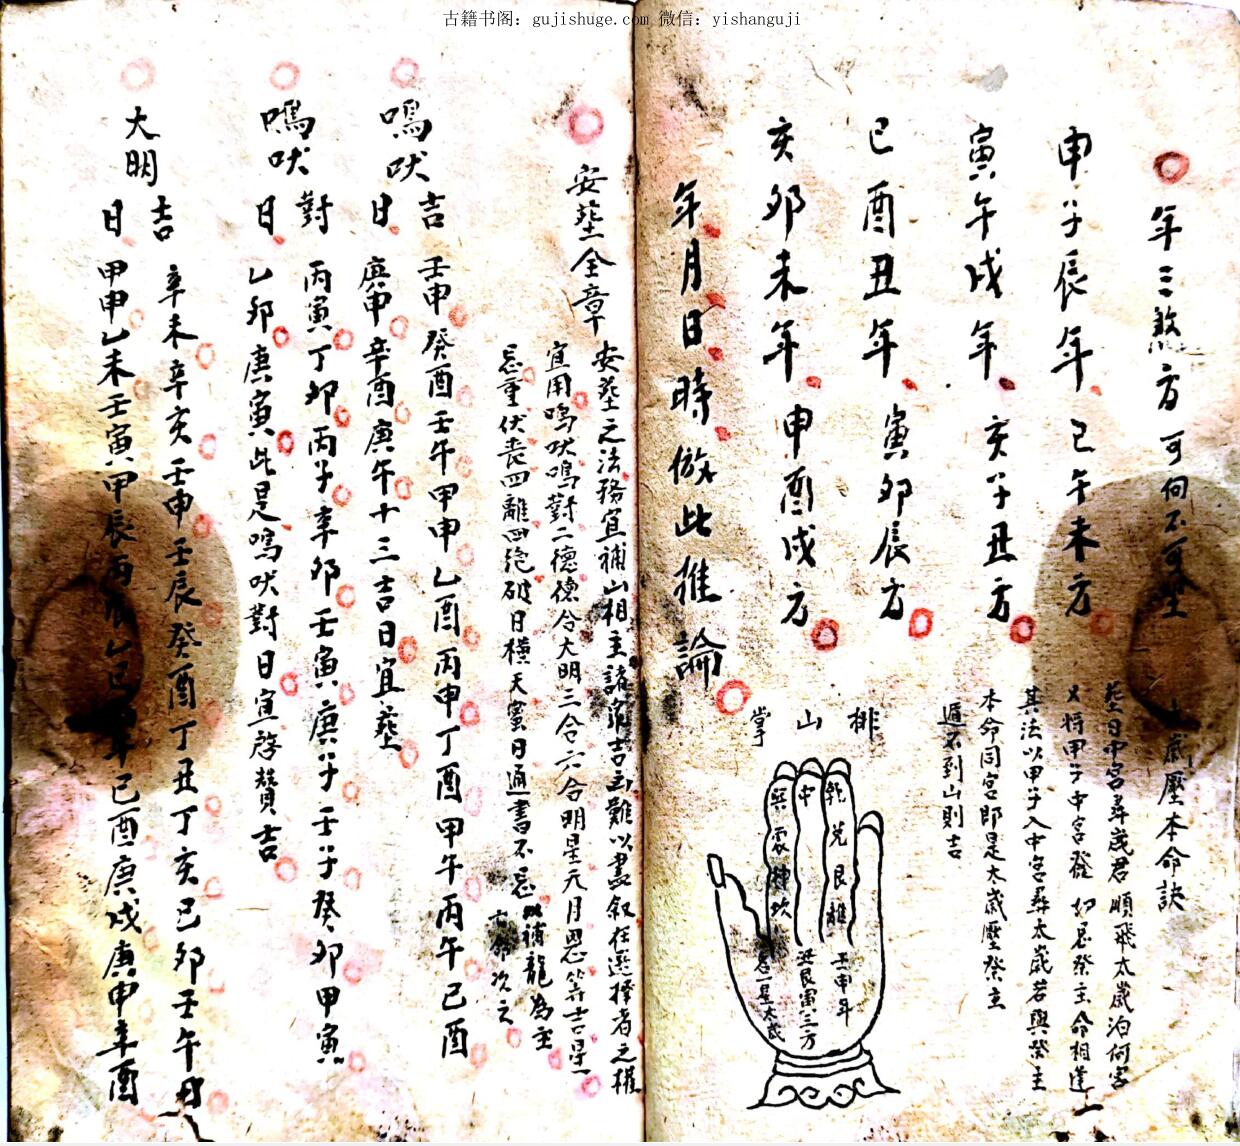 古籍书阁：gujishuge.com 微信：yishanguji
年三煞方可向不可坐
申子辰年巳午未方
寅午戌年亥子丑方
巳酉丑年寅卯辰方
亥卯未年申酉戌方
年月日時倣此推論
歲壓本命訣
葬日中宮尋歲君順飛太歲泊何宮
又將甲子中宮發如忌祭主命相逢
其法以甲子入中宮尋太歲若與祭主
本命同宮即是太歲壓祭主
遁不到山則吉
排山掌
乾兌艮離
中
巽震坤坎
壬申年
丑艮寅三方
安葬全章
安葬之法務宜補山相主諸家吉凶難以盡叙在選擇者之權
宜用鳴吠鳴對二德德合大明三合六合明星天月恩等吉星
忌重伏喪四離四絕破日横天蜜日通書不忌以補龍為主
次之
鳴吠吉日
壬申癸酉壬午甲申乙酉丙申丁酉甲午丙午己酉
庚申辛酉庚午十三吉日宜葬
鳴吠對日
丙寅丁卯丙子辛卯壬寅庚子壬子癸卯甲寅
乙卯庚寅此是鳴吠對日宜啓攅吉
大明吉日
辛未辛亥壬申壬辰癸酉丁丑丁亥己卯壬午丙
甲申乙未壬寅甲辰丙乙巳己酉庚戌庚申辛酉